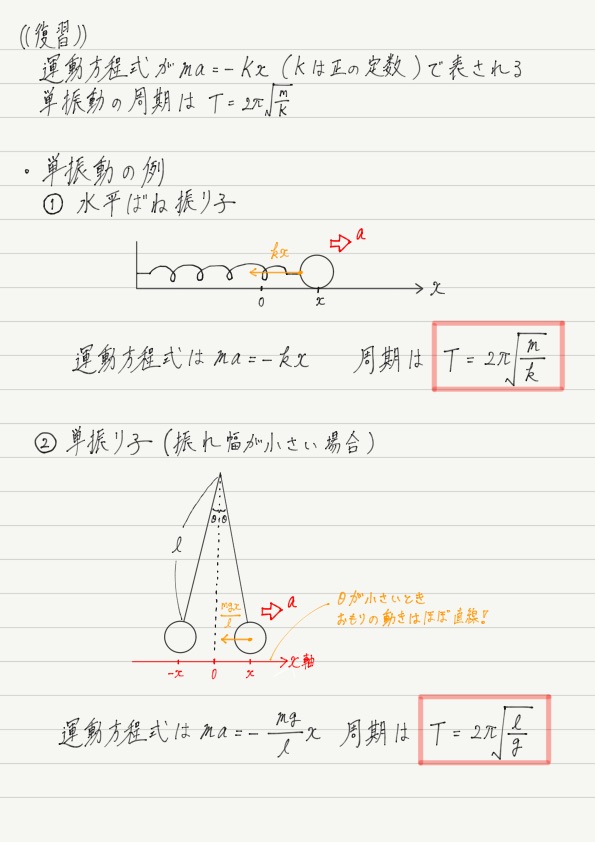 ((復習))
運動方程式がma=-Kx (Kは正の定数)で表される
単振動の周期は T=2π√(m/K)
・単振動の例
① 水平ばね振り子
a
kx
0 x x
運動方程式は ma=-kx 周期は T=2π√(m/k)
② 単振り子(振れ幅が小さい場合)
θ θ
l
mgx/l a
θが小さいとき
おもりの動きはほぼ直線!
-x 0 x x軸
運動方程式は ma=-mg/l x 周期は T=2π√(l/g)